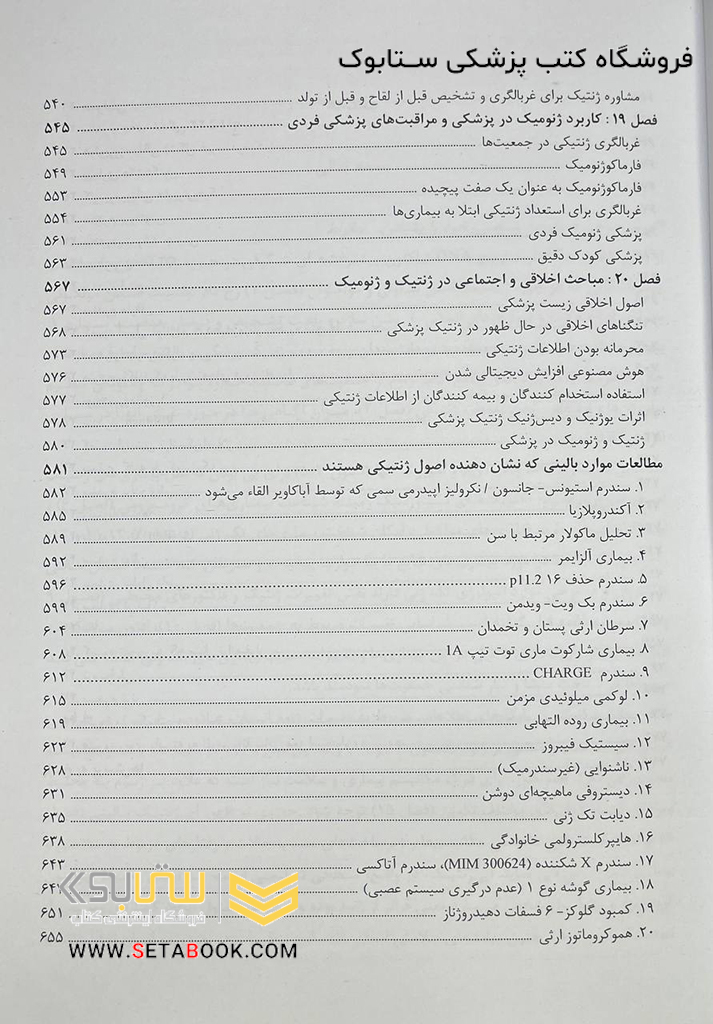 فروشگاه کتب پزشکی ستابوک
مشاوره ژنتیک برای غربالگری و تشخیص قبل از لقاح و قبل از تولد ... ۵۴۰
فصل ۱۹ : کاربرد ژنومیک در پزشکی و مراقبت‌های پزشکی فردی ... ۵۴۵
غربالگری ژنتیکی در جمعیت‌ها ... ۵۴۵
فارماکوژنومیک ... ۵۴۹
فارماکوژنومیک به عنوان یک صفت پیچیده ... ۵۵۳
غربالگری برای استعداد ژنتیکی ابتلا به بیماری‌ها ... ۵۵۴
پزشکی ژنومیک فردی ... ۵۶۱
پزشکی کودک دقیق ... ۵۶۳
فصل ۲۰ : مباحث اخلاقی و اجتماعی در ژنتیک و ژنومیک ... ۵۶۷
اصول اخلاقی زیست پزشکی ... ۵۶۷
تنگناهای اخلاقی در حال ظهور در ژنتیک پزشکی ... ۵۶۸
محرمانه بودن اطلاعات ژنتیکی ... ۵۷۳
هوش مصنوعی افزایش دیجیتالی شدن ... ۵۷۶
استفاده استخدام کنندگان و بیمه کنندگان از اطلاعات ژنتیکی ... ۵۷۷
اثرات یوژنیک و دیس‌ژنیک ژنتیک پزشکی ... ۵۷۸
ژنتیک و ژنومیک در پزشکی ... ۵۸۰
مطالعات موارد بالینی که نشان دهنده اصول ژنتیکی هستند ... ۵۸۱
۱. سندرم استیونس- جانسون / نکرولیز اپیدرمی سمی که توسط آباکاویر القاء می‌شود ... ۵۸۲
۲. آکندروپلازیا ... ۵۸۵
۳. تحلیل ماکولار مرتبط با سن ... ۵۸۹
۴. بیماری آلزایمر ... ۵۹۲
۵. سندرم حذف ۱۶ p11.2 ... ۵۹۶
۶. سندرم بک ویت- ویدمن ... ۵۹۹
۷. سرطان ارثی پستان و تخمدان ... ۶۰۴
۸. بیماری شارکوت ماری توت تیپ 1A ... ۶۰۸
۹. سندرم CHARGE ... ۶۱۲
۱۰. لوکمی میلوئیدی مزمن ... ۶۱۵
۱۱. بیماری روده التهابی ... ۶۱۹
۱۲. سیستیک فیبروز ... ۶۲۳
۱۳. ناشنوایی (غیرسندرمیک) ... ۶۲۸
۱۴. دیستروفی ماهیچه‌ای دوشن ... ۶۳۱
۱۵. دیابت تک ژنی ... ۶۳۵
۱۶. هایپرکلسترولمی خانوادگی ... ۶۳۸
۱۷. سندرم X شکننده (MIM 300624)، سندرم آتاکسی ... ۶۴۳
۱۸. بیماری گوشه نوع ۱ (عدم درگیری سیستم عصبی) ...
۱۹. کمبود گلوکز- ۶ فسفات دهیدروژناز ... ۶۵۱
۲۰. هموکروماتوز ارثی ... ۶۵۵
ستابوک
فروشگاه اینترنتی کتاب
WWW.SETABOOK.COM